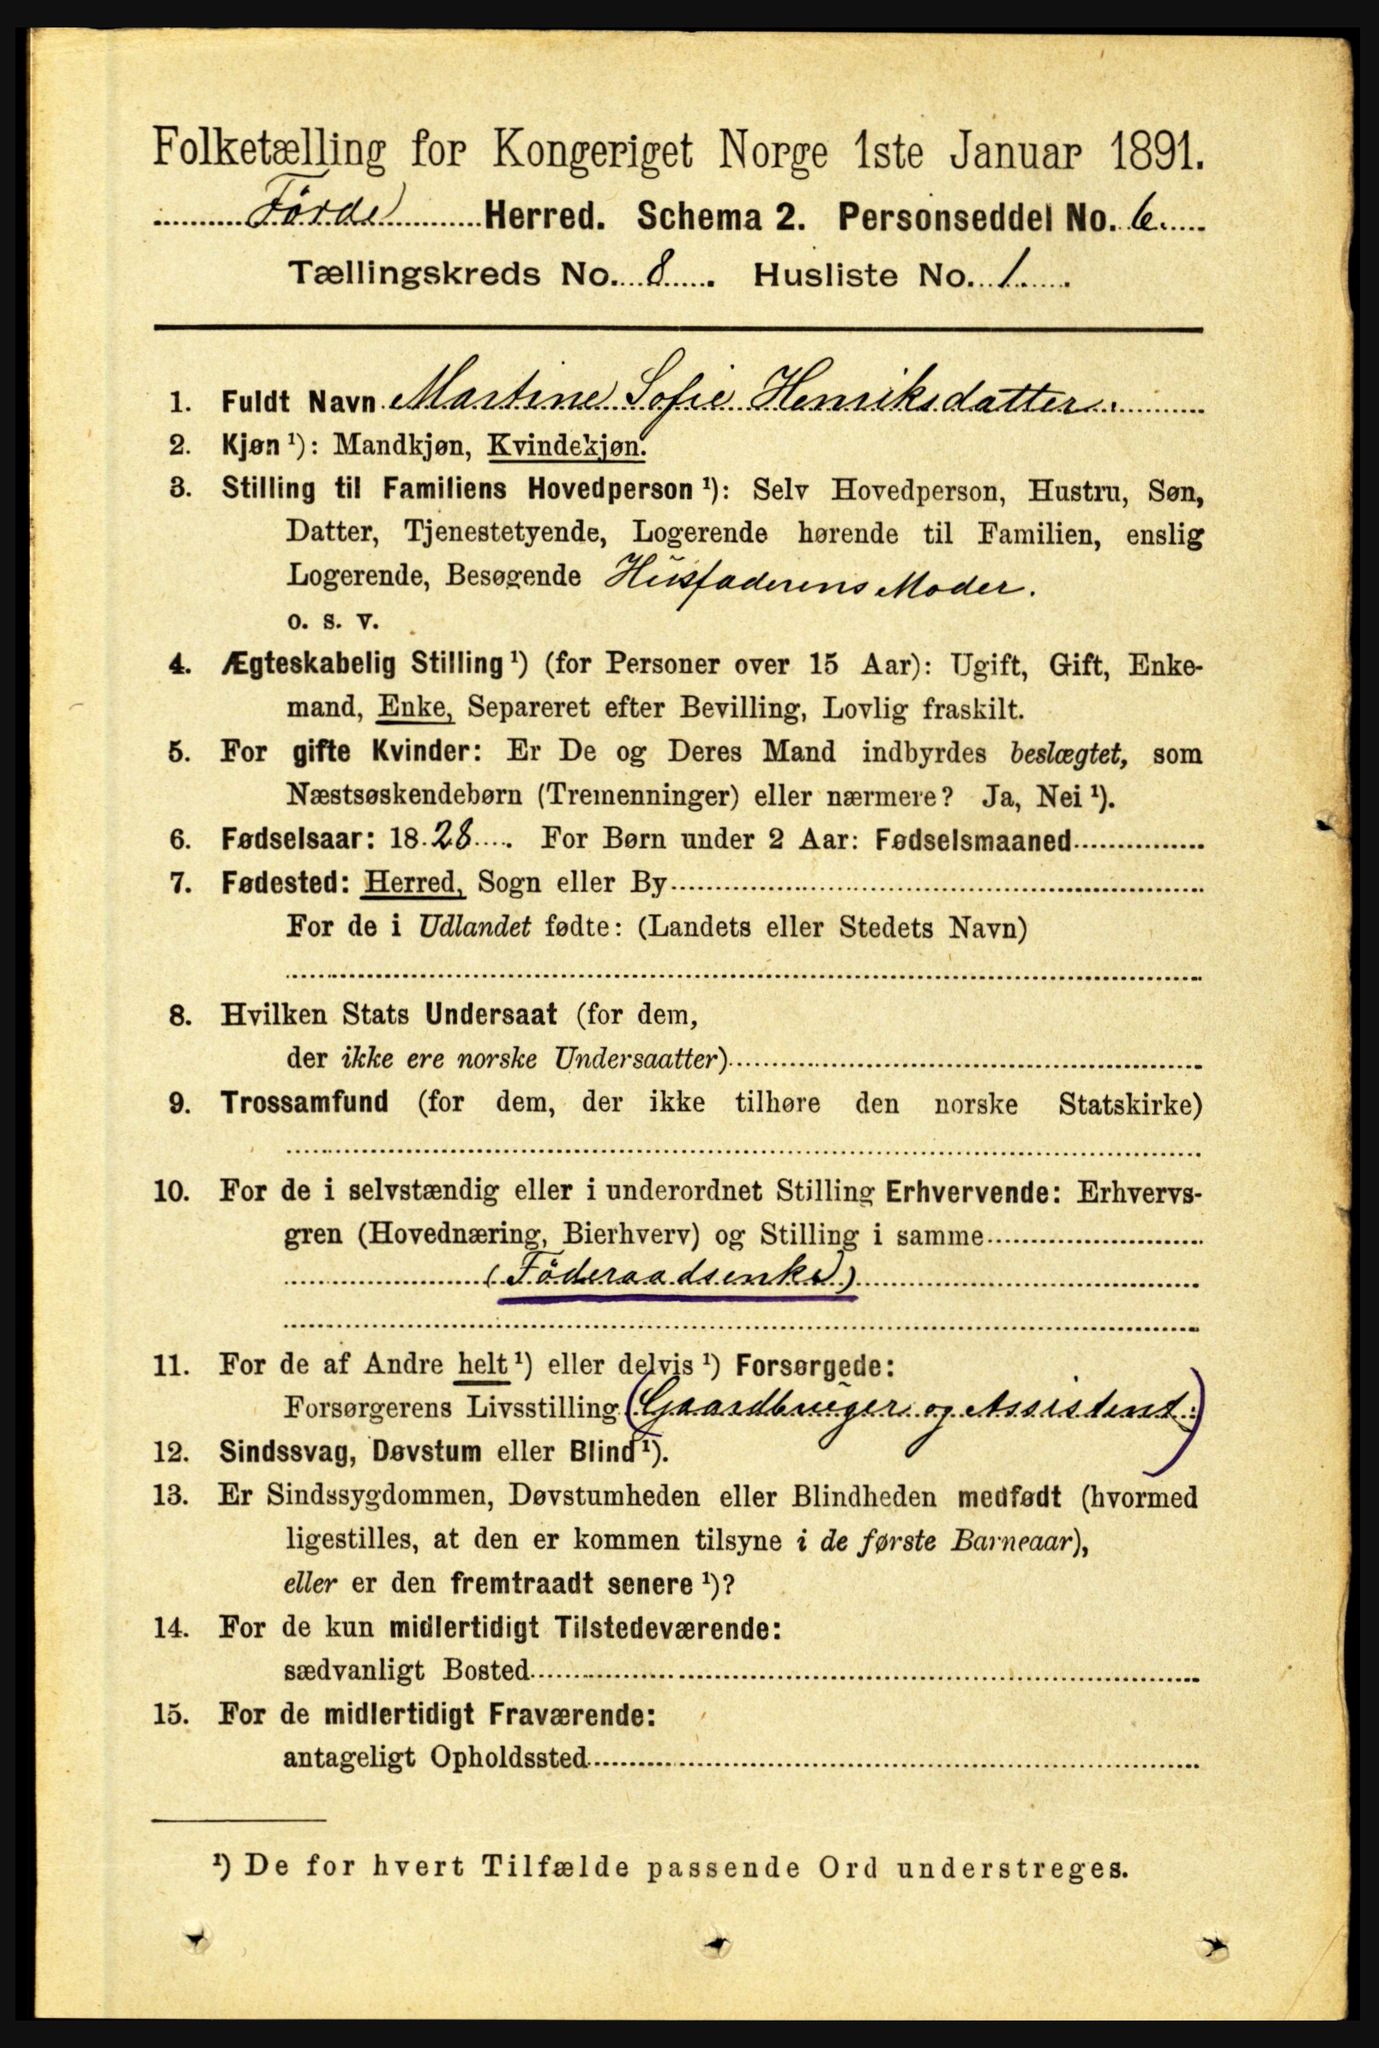 Folketælling for Kongeriget Norge 1ste Januar 1891.
Førde Herred. Schema 2. Personseddel No. 6.
Tællingskreds No. 8. Husliste No. 1
1. Fuldt Navn Martine Sofie Henriksdatter.
2. Kjøn ¹): Mandkjøn, Kvindekjøn.
3. Stilling til Familiens Hovedperson ¹): Selv Hovedperson, Hustru, Søn,
Datter, Tjenestetyende, Logerende hørende til Familien, enslig
Logerende, Besøgende Husfaderens Moder.
o. s. v.
4. Ægteskabelig Stilling ¹) (for Personer over 15 Aar): Ugift, Gift, Enke-
mand, Enke, Separeret efter Bevilling, Lovlig fraskilt.
5. For gifte Kvinder: Er De og Deres Mand indbyrdes beslægtet, som
Næstsøskendebørn (Tremenninger) eller nærmere? Ja, Nei ¹).
6. Fødselsaar: 1828. For Børn under 2 Aar: Fødselsmaaned
7. Fødested: Herred, Sogn eller By
For de i Udlandet fødte: (Landets eller Stedets Navn)
8. Hvilken Stats Undersaat (for dem,
der ikke ere norske Undersaatter)
9. Trossamfund (for dem, der ikke tilhøre den norske Statskirke)
10. For de i selvstændig eller i underordnet Stilling Erhvervende: Erhvervs-
gren (Hovednæring, Bierhverv) og Stilling i samme
(Föderaadsenke)
11. For de af Andre helt ¹) eller delvis ¹) Forsørgede:
Forsørgerens Livsstilling (Gaardbruger og Assistent.)
12. Sindssvag, Døvstum eller Blind ¹).
13. Er Sindssygdommen, Døvstumheden eller Blindheden medfødt (hvormed
ligestilles, at den er kommen tilsyne i de første Barneaar),
eller er den fremtraadt senere ¹)?
14. For de kun midlertidigt Tilstedeværende:
sædvanligt Bosted
15. For de midlertidigt Fraværende:
antageligt Opholdssted
¹) De for hvert Tilfælde passende Ord understreges.